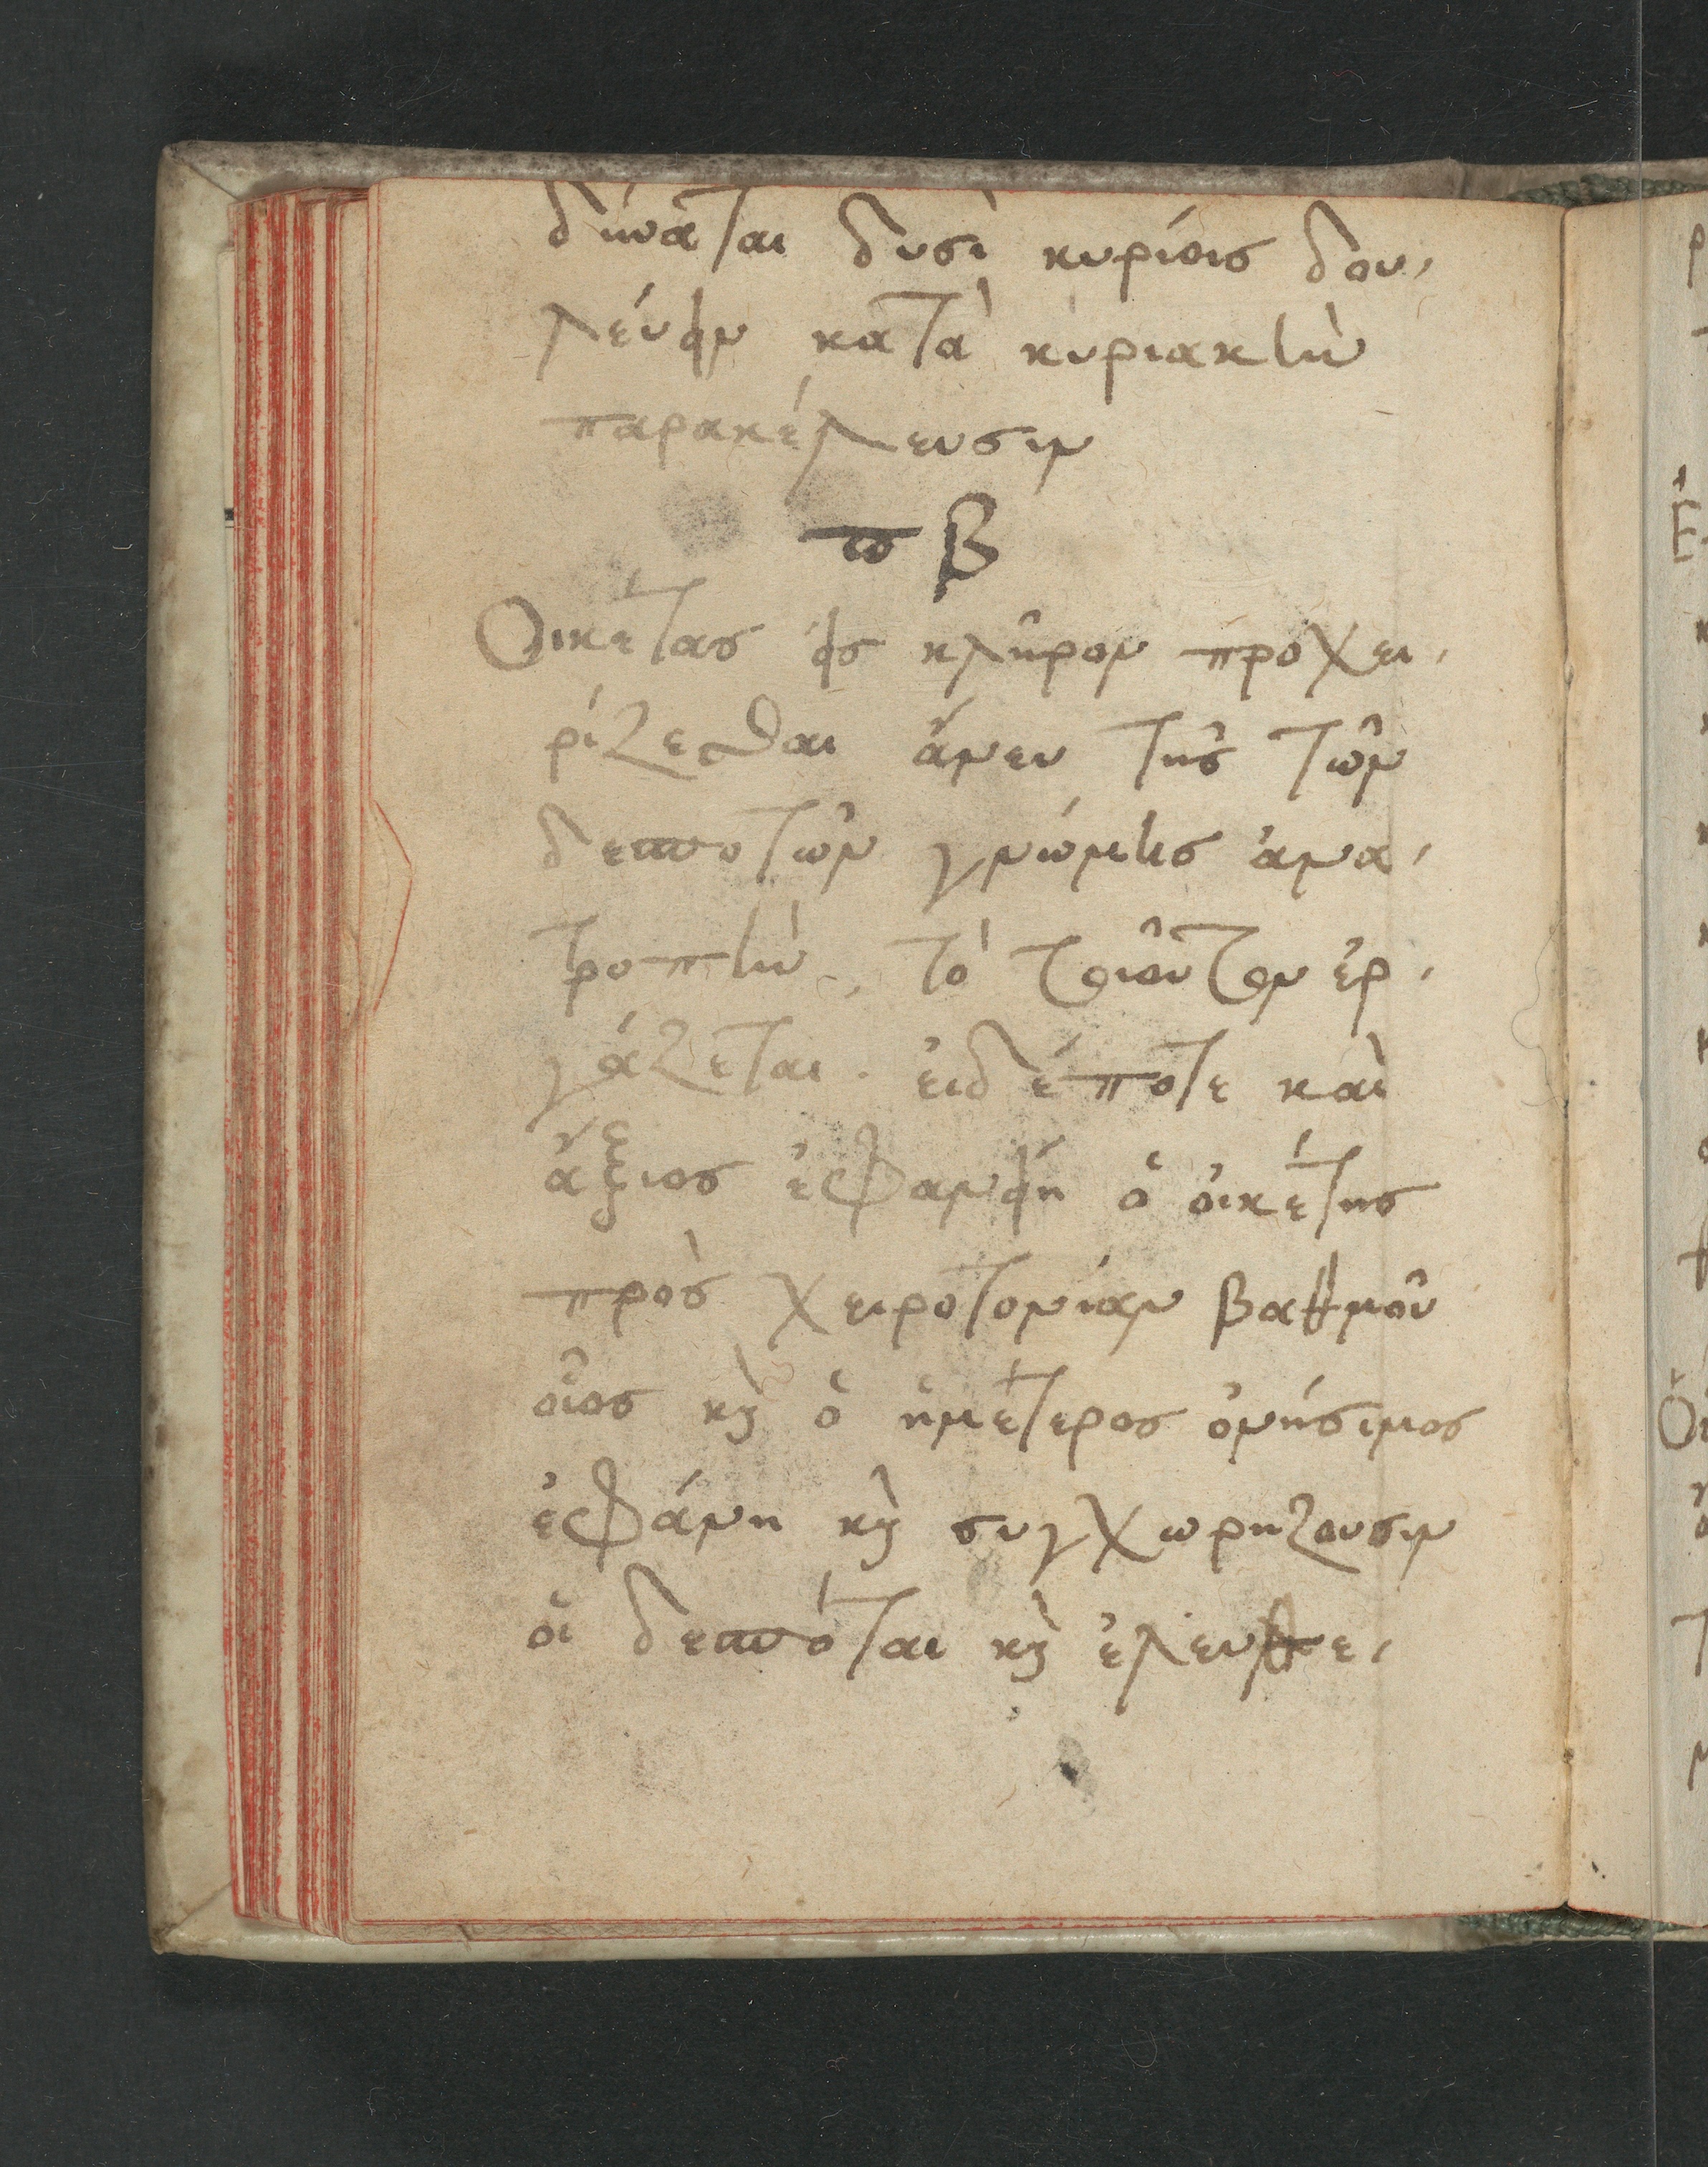 δύναται δυσὶ κυρίοις δου,
λέυειν κατὰ κυριακὴν
παρακέλευσιν
πβ
Οικέτας εἰς κλῆρον προχει,
ρίζεσθαι ἄνευ τῆς τῶν
δεσποτῶν γνώμης ἀνα,
τροπὴν, τὸ τοιοῦτον ἐρ,
γάζεται. ἐιδέποτε καὶ
ἄξιος ἐφανείη ὁ ὀικέτης
πρὸς χειροτονίαν βαθμοῦ
οἷος κὴ ὁ ἡμέτερος ὀνήσιμος
ἐφάνη κὴ συγχωρηζουσιν
ὁι δεσπόται κὴ ἐλευθε,